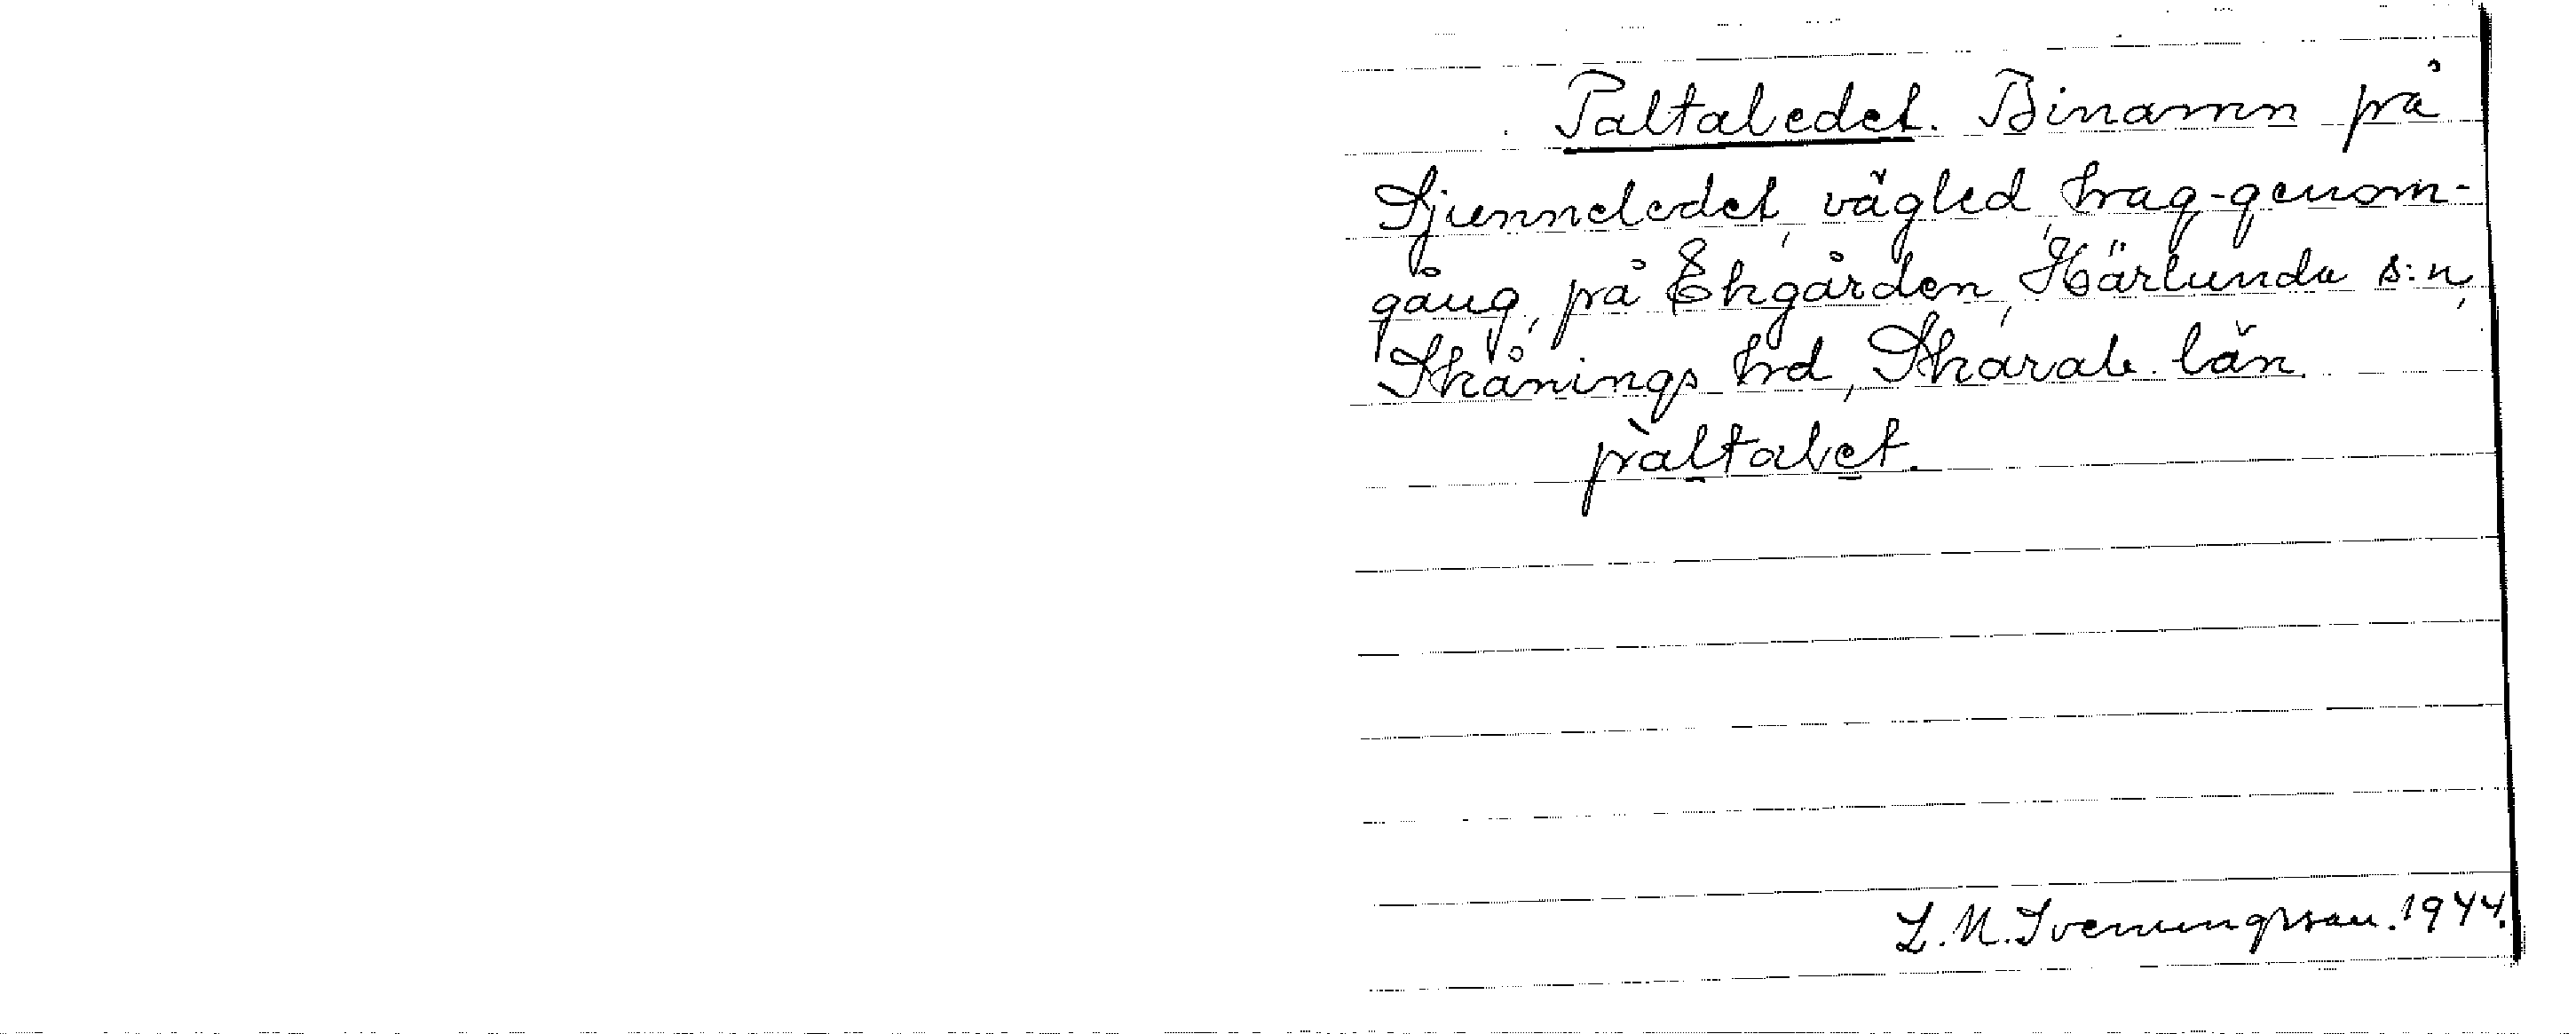 Paltaledet. Binamn på
Sjunneledet, vägled, hrag-genom-
gång, på Ekgården, Härlunda s:n,
Skånings hrd, Skarab. län.
pàltalet.
L. M. Svenungsson. 1944.